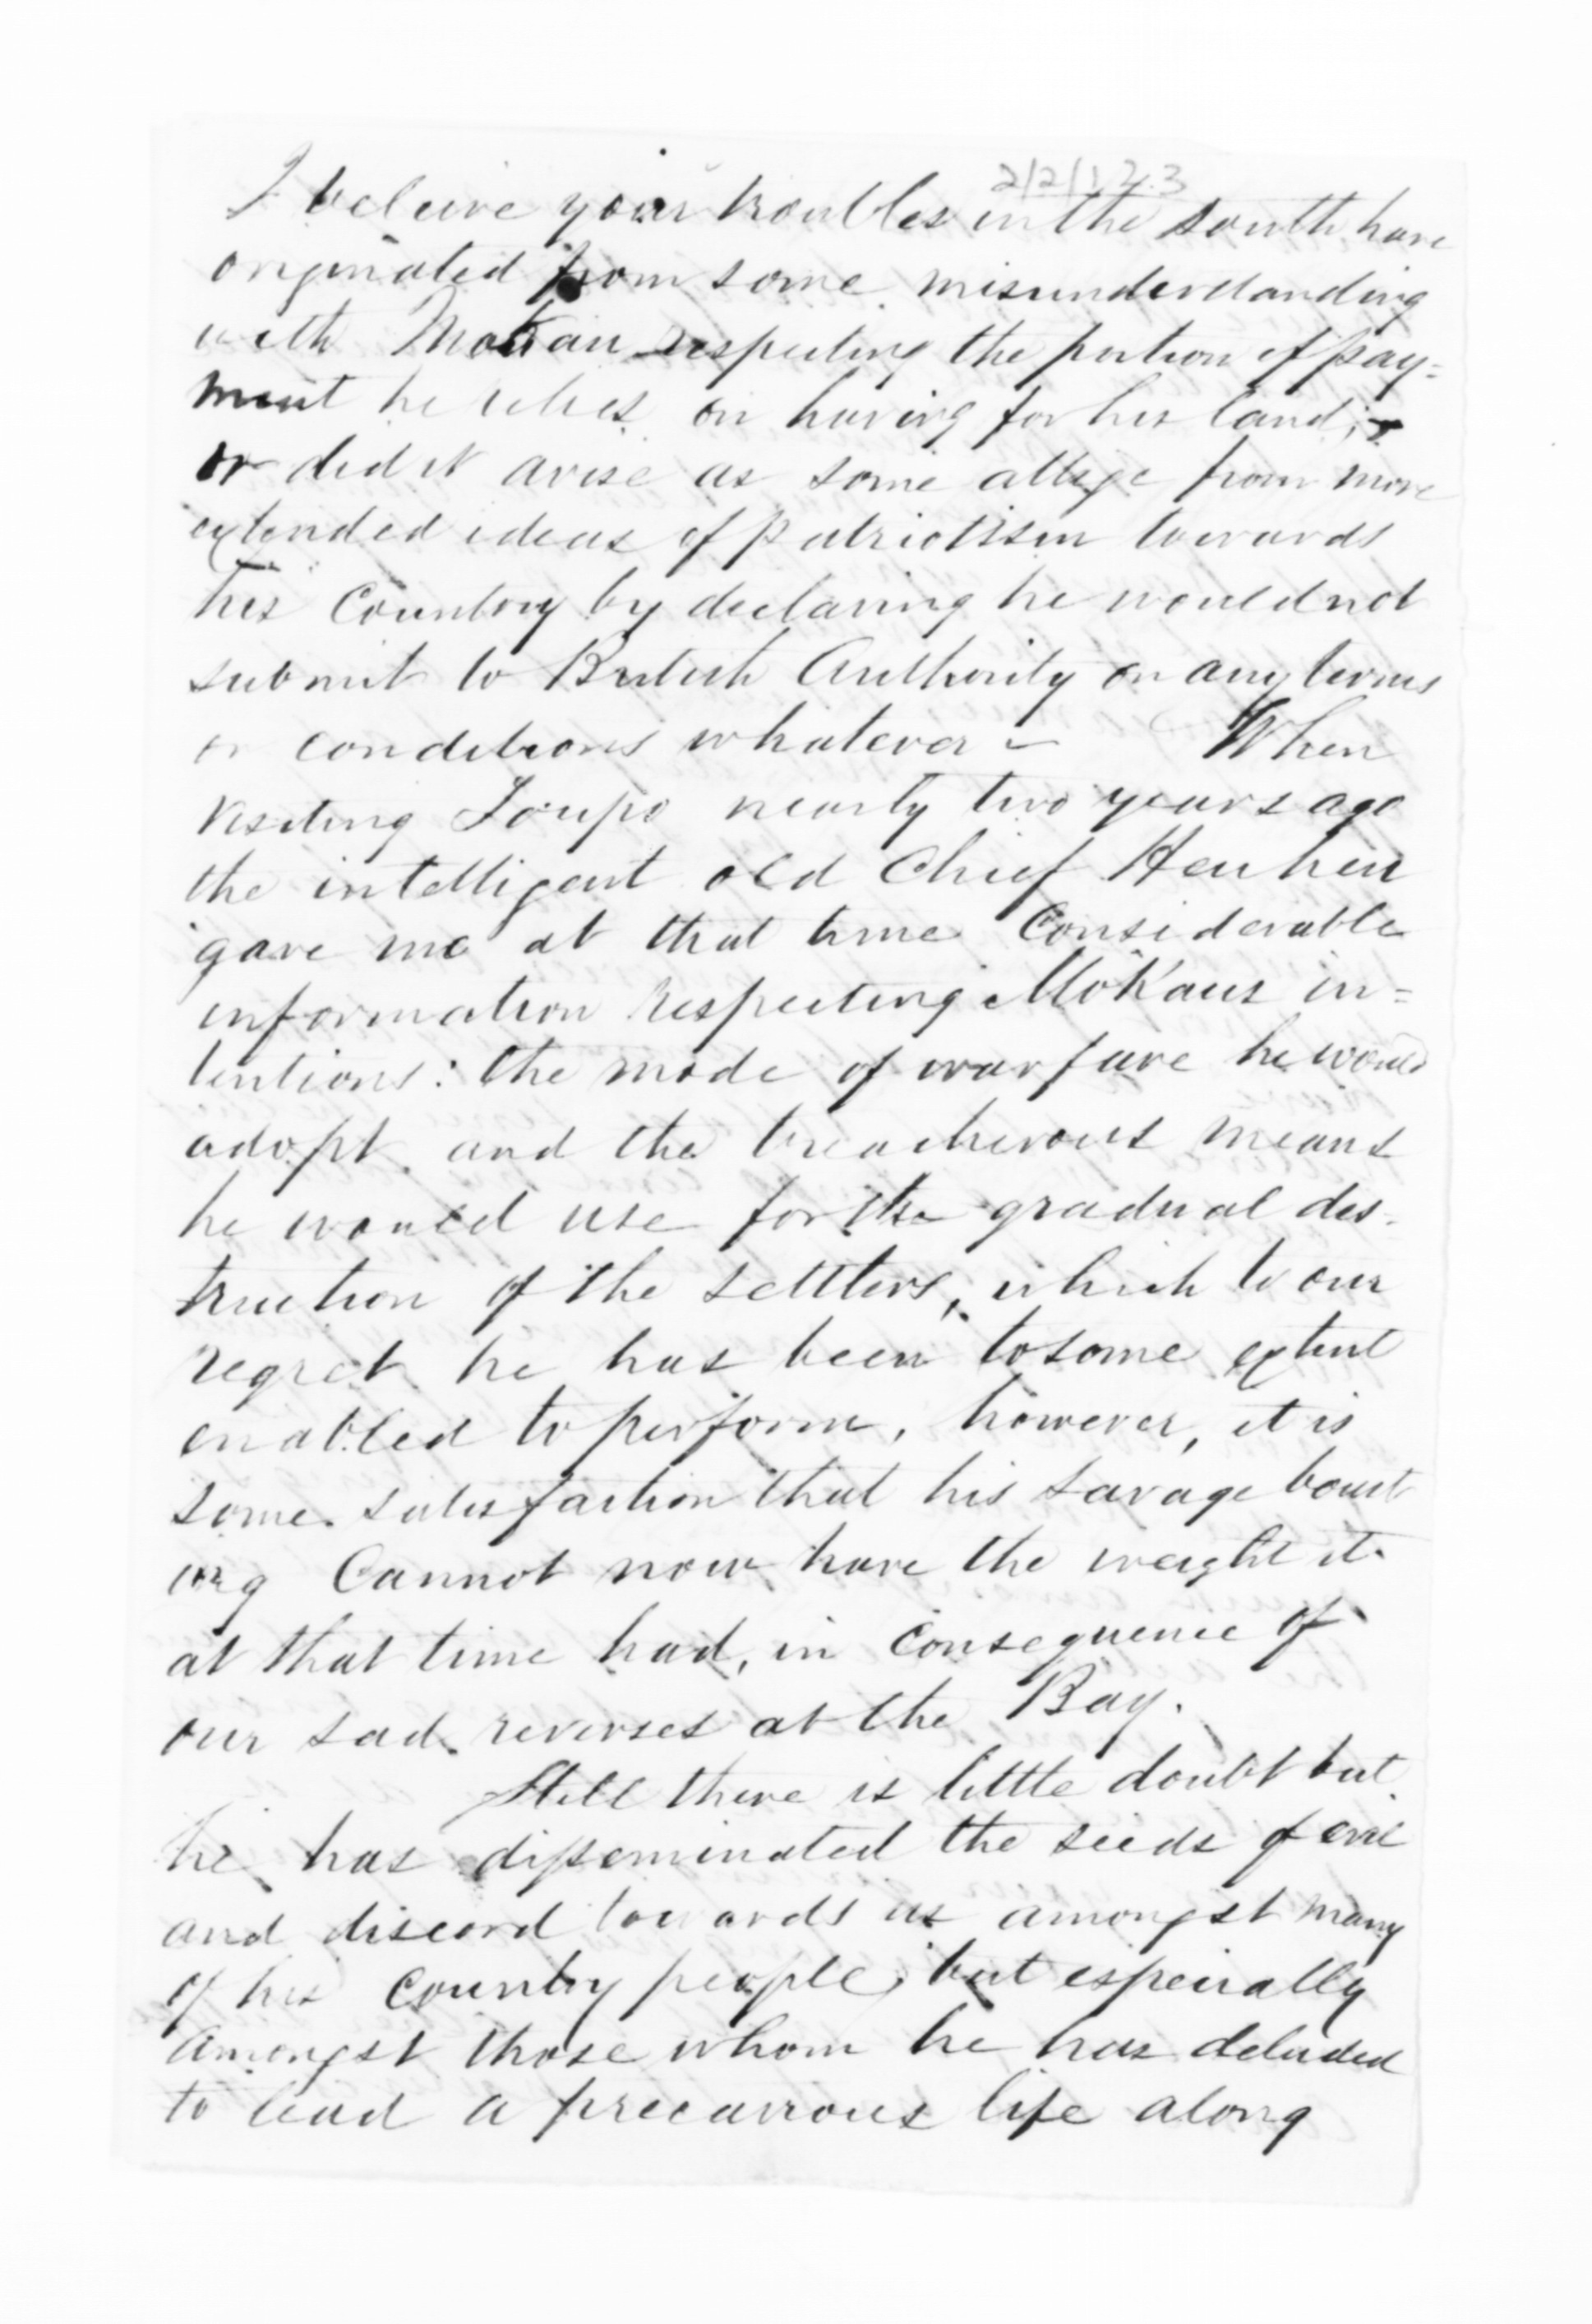 2/2/123
I beleive your troubles in the south have
originated from some misunderstanding
with Mokau respecting the portion of pay=
ment he relies on having for his land;
or did it arise as some allege from more
extended ideas of patriotism towards
his Country by declaring he would not
submit to British Authority on any terms
or conditions whatever – When
visiting Toupo nearly two years ago
the intelligent old Chief Heu heu
gave me at that time Considerable
information respecting Mokaus in=
tentions: the mode of warfare he would
adopt and the treacherous means
he would use for the gradual des-
truction of the settlers, which to our
regret he has been to some extent
enabled to perform, however, it is
some satisfaction that his savage boast
ing Cannot now have the weight it
at that time had, in consequence of
our sad reverses at the Bay.
Still there is little doubt but
he has disseminated the seeds of evil
and discord towards us amongst many
of his Country people, but espeically
amongst those whom he has deluded
to lead a precarious life along